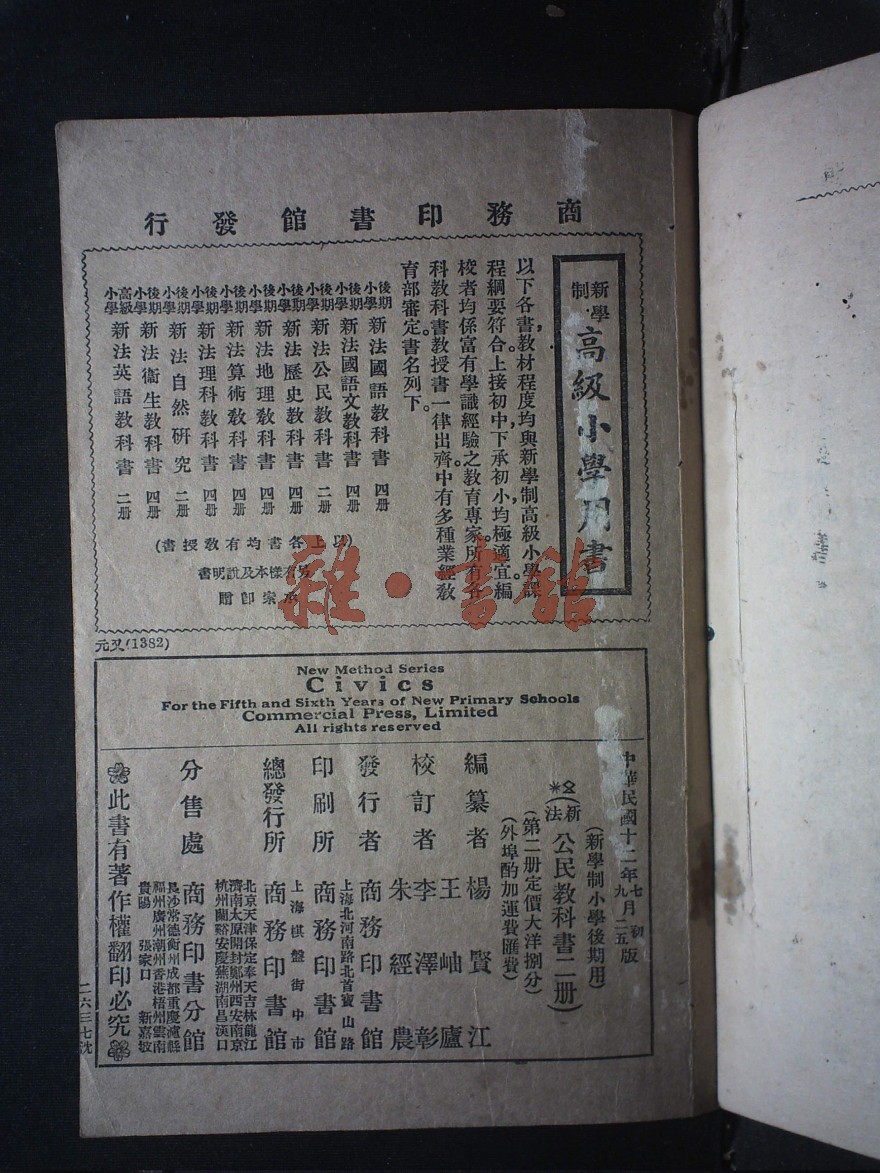 商務印書館發行
新學制
高級小學用書
以下各書,教材程度均與新學制高級小學課
程綱要符合。上接初中,下承初小,均極適宜。編
校者均係富有學識經驗之教育專家。所有各
科教科書教授書一律出齊。中有多種業經教
育部審定。書名列下。
後期小學 新法國語教科書 四册
後期小學 新法國語文教科書 四册
後期小學 新法公民教科書 二册
後期小學 新法歷史教科書 四册
後期小學 新法地理教科書 四册
後期小學 新法算術教科書 四册
後期小學 新法理科教科書 四册
後期小學 新法自然研究 二册
後期小學 新法衞生教科書 四册
高級小學 新法英語教科書 二册
(以上各書均有教授書)
另有樣本及說明書
承索卽贈
雜·書館
元又(1382)
New Method Series
Civics
For the Fifth and Sixth Years of New Primary Schools
Commercial Press, Limited
All rights reserved
中華民國十二年七月初版
九月二五版
(新學制小學後期用)
(新法公民教科書二册)
(第二册定價大洋捌分)
(外埠酌加運費匯費)
編纂者 楊賢江
王岫廬
校訂者 李澤彰
朱經農
發行者 商務印書館
上海北河南路北首寶山路
印刷所 商務印書館
上海棋盤街中市
總發行所 商務印書館
北京天津保定奉天吉林龍江
濟南太原開封鄭州西安南京
杭州蘭谿安慶蕪湖南昌漢口
分售處 商務印書分館
長沙常德衡州成都重慶瀘縣
福州廣州潮州香港梧州雲南
貴陽 張家口 新嘉坡
此書有著作權翻印必究
二六三七沈